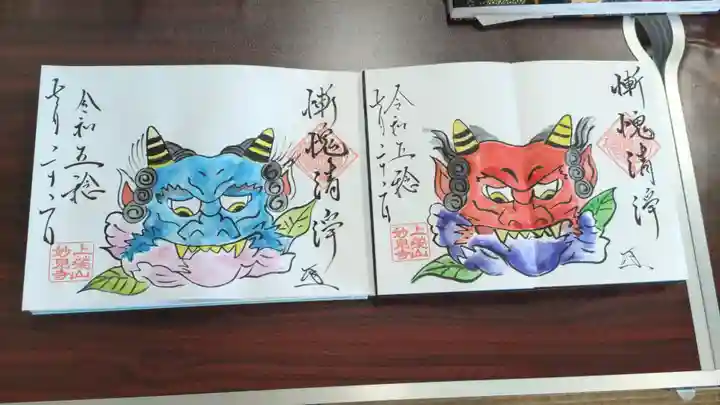 慚愧清浄
令和五稔
七月二十六日
上榮山
妙見寺
慚愧清浄
令和五稔
七月二十六日
上榮山
妙見寺